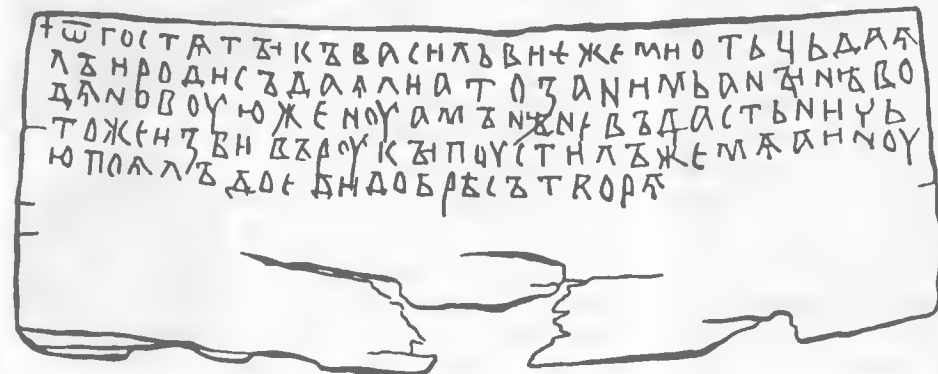 +ѿгостѧтъıкъвасильвиєжемиотьцьдаѧ
лъиродисъдаѧлиатозанимьанъıнѣво
дѧновоуюженоуамънѣневъдастьничь
тожеизбивъроукъıпоустилъжемѧаиноу
юпоѧлъдоєдидобрѣсътворѧ